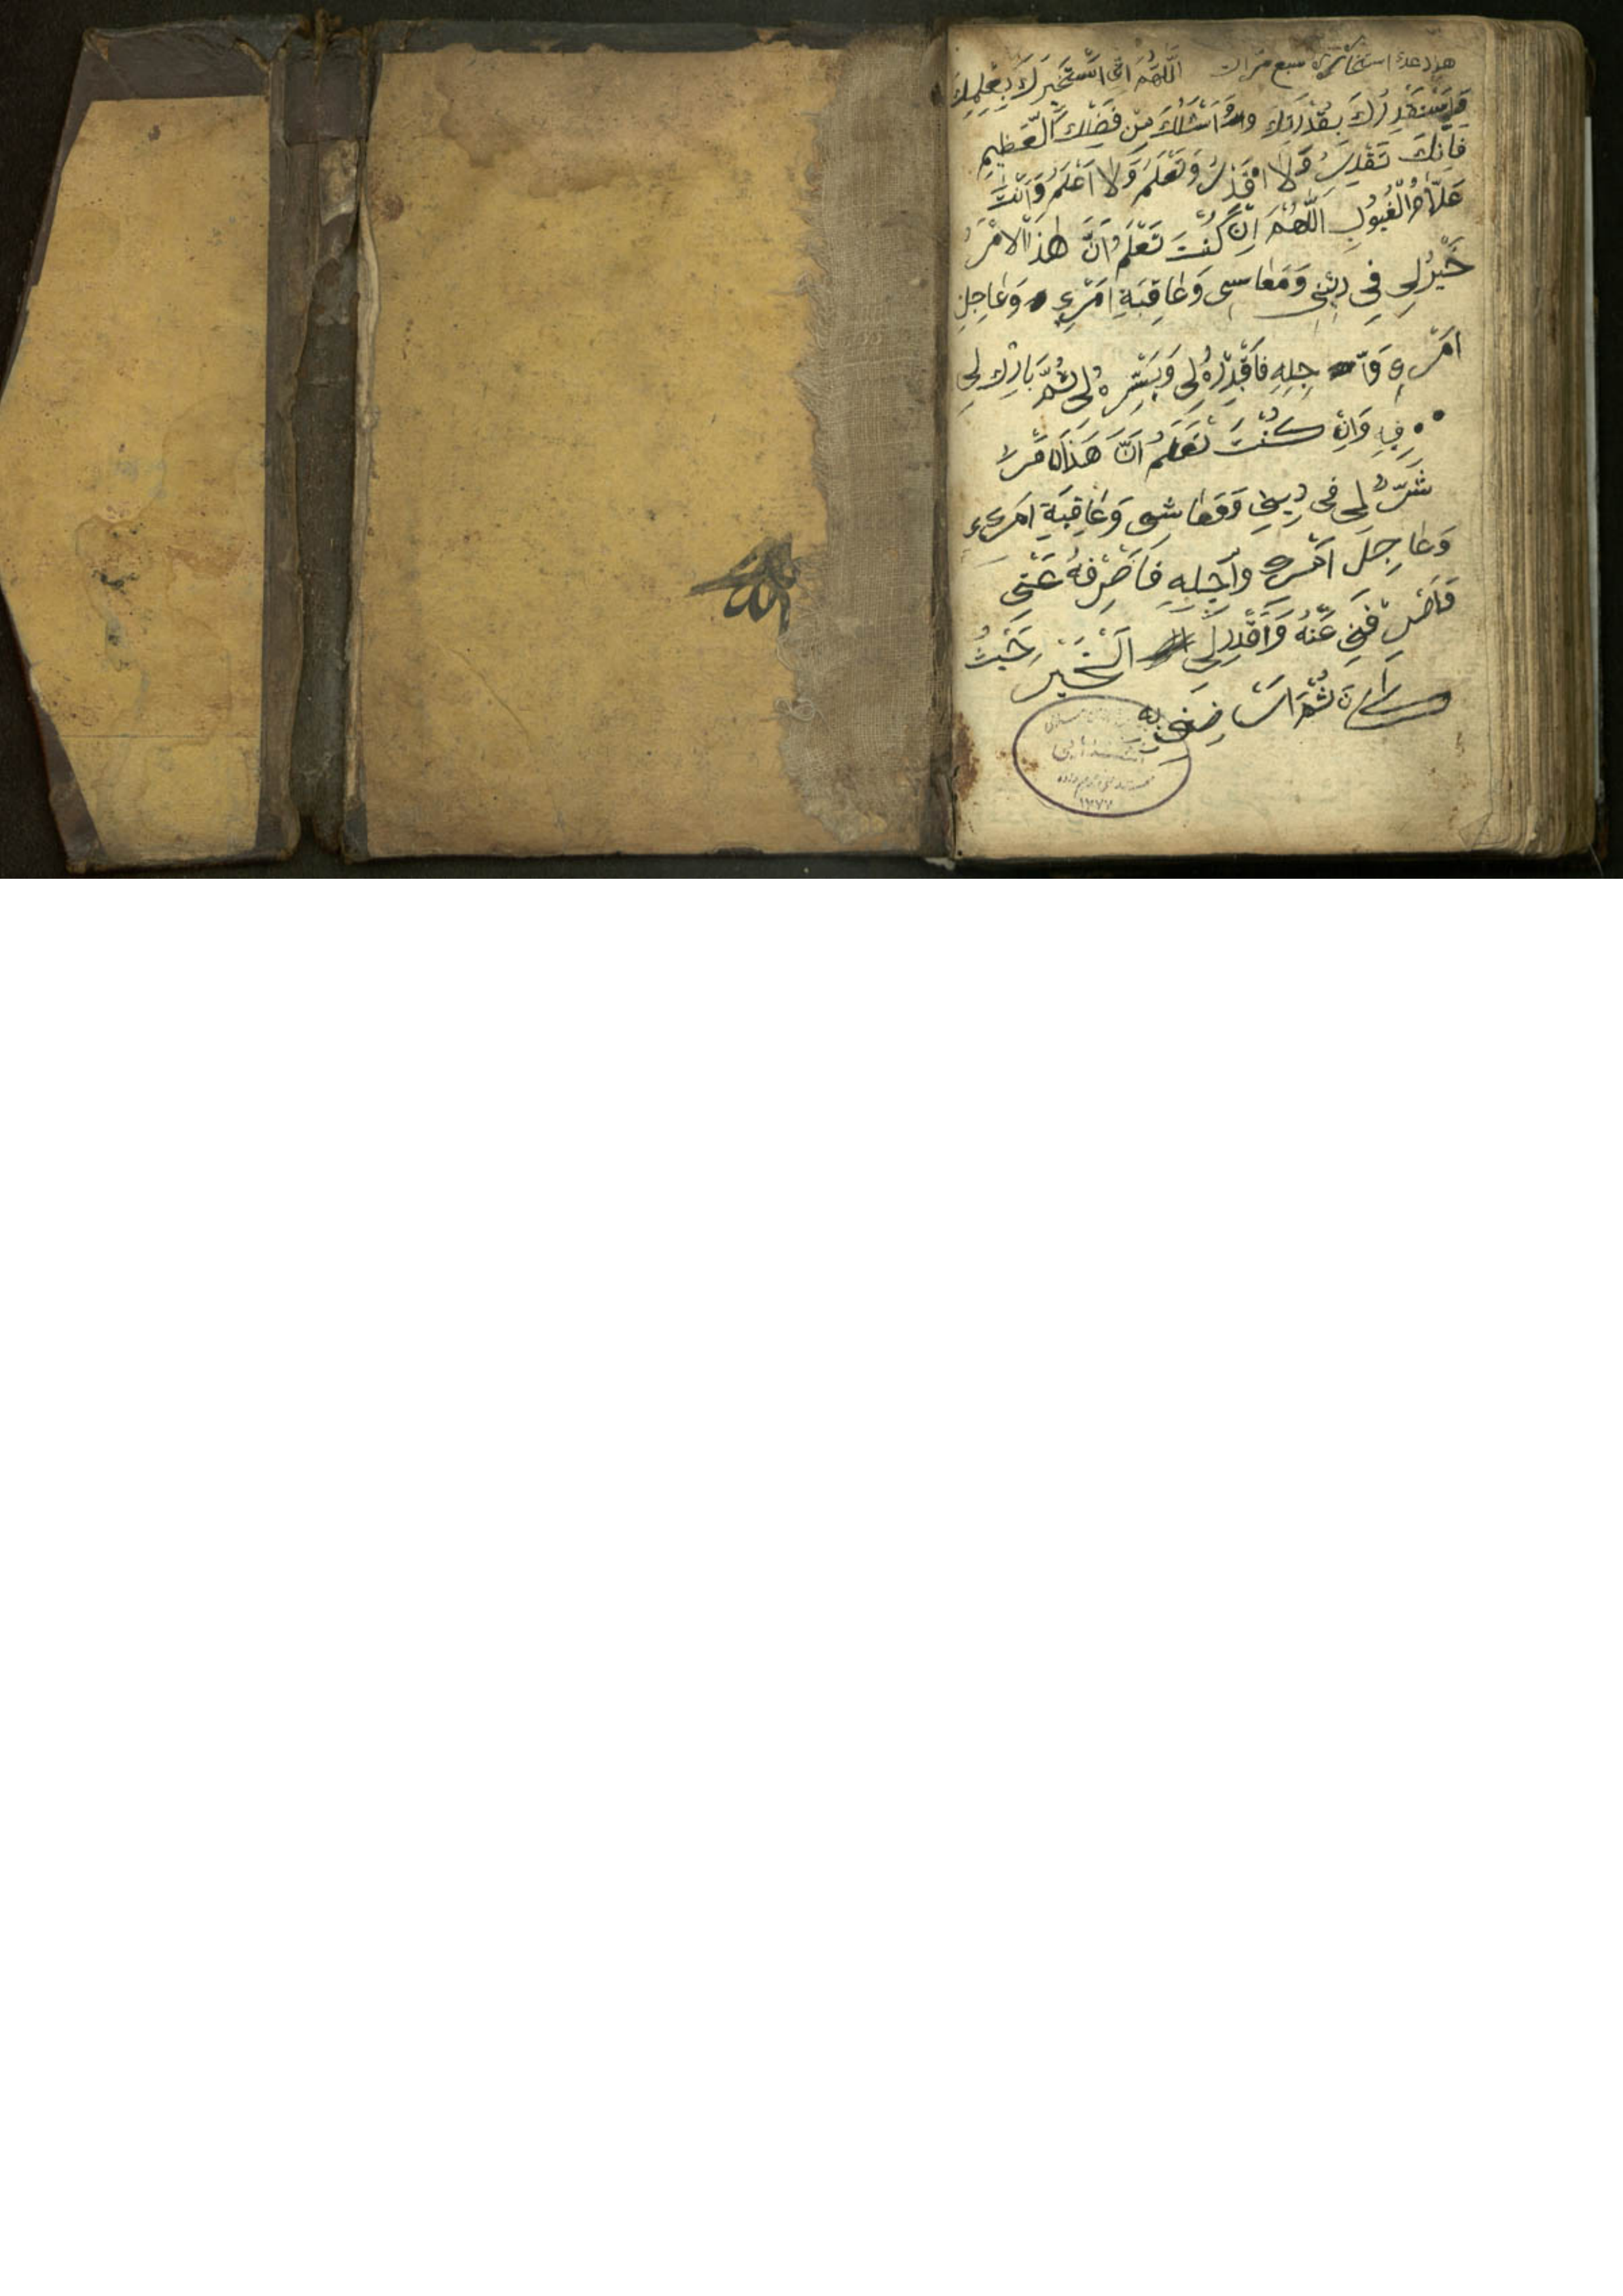 هذا دعاء استخاره سبع مرات اَللّهُمَ اِنّى اَسْتَخيرُكَ بِعِلمِكَ
وَاَسْتَقْدِرُكَ بِقُدْرَتِكَ وَاَسْئَلُكَ مِنْ فَضْلِكَ الْعَظِيمِ
فَاِنَّكَ تَقْدِرُ وَلَا اَقْدِرُ وَتَعْلَمُ وَلا اَعْلَمُ وَاَنْتَ
عَلَّامُ الْغُيُوبِ اَللّهُمَ اِنْ كُنْتَ تَعْلَمُ اَنَّ هٰذَا الْاَمْرَ
خَيْرٌ لِى فِى دِينِى وَمَعاسِى وَعَاقِبَةِ اَمْرِى وَعَاجِلِ
اَمْرِى وَآ جِلِهِ فَاَقْدِرْهُ لِى وَيَسِّرْهُ لِى ثُمَّ بَارِكْ لِى
فِيهِ وَاِنْ كُنْتَ تَعْلَمُ اَنَّ هَذَا الامْرَ
شَرٌّ لِى فِى دِينِى وَمَعَاشِى وَعَاقِبَةِ اَمْرِى
وَعَاجِلَ اَمْرِى وَآجِلِهِ فَاَصْرِفْهُ عَنّى
وَاَصْرِفْنِى عَنْهُ وَاَقْدِرْ لِى اَلْخَيْرَ حَيْثُ
كَانَ ثُمَّ اَرْضِنِى بِهِ
الله
١٢٧٧